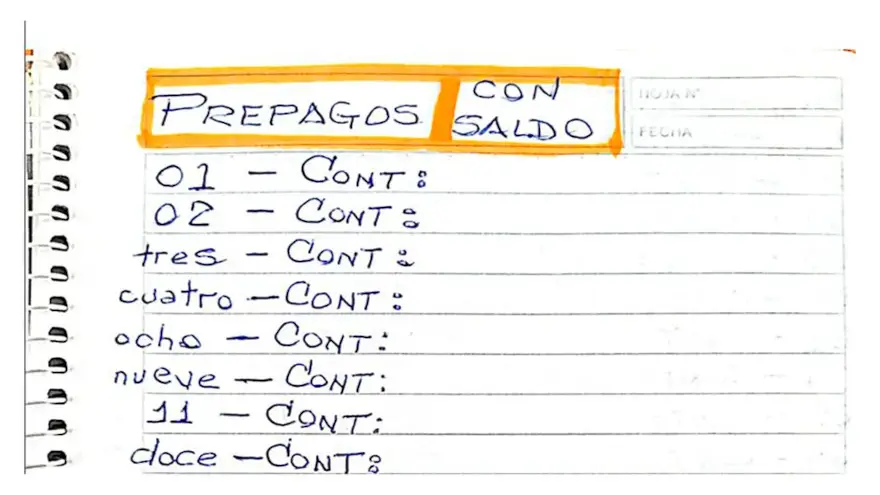 PREPAGOS
CON
SALDO
HOJA N°
FECHA
01 - CONT:
02 - CONT:
tres - CONT:
cuatro - CONT:
ocho - CONT:
nueve - CONT:
11 - CONT:
doce - CONT: